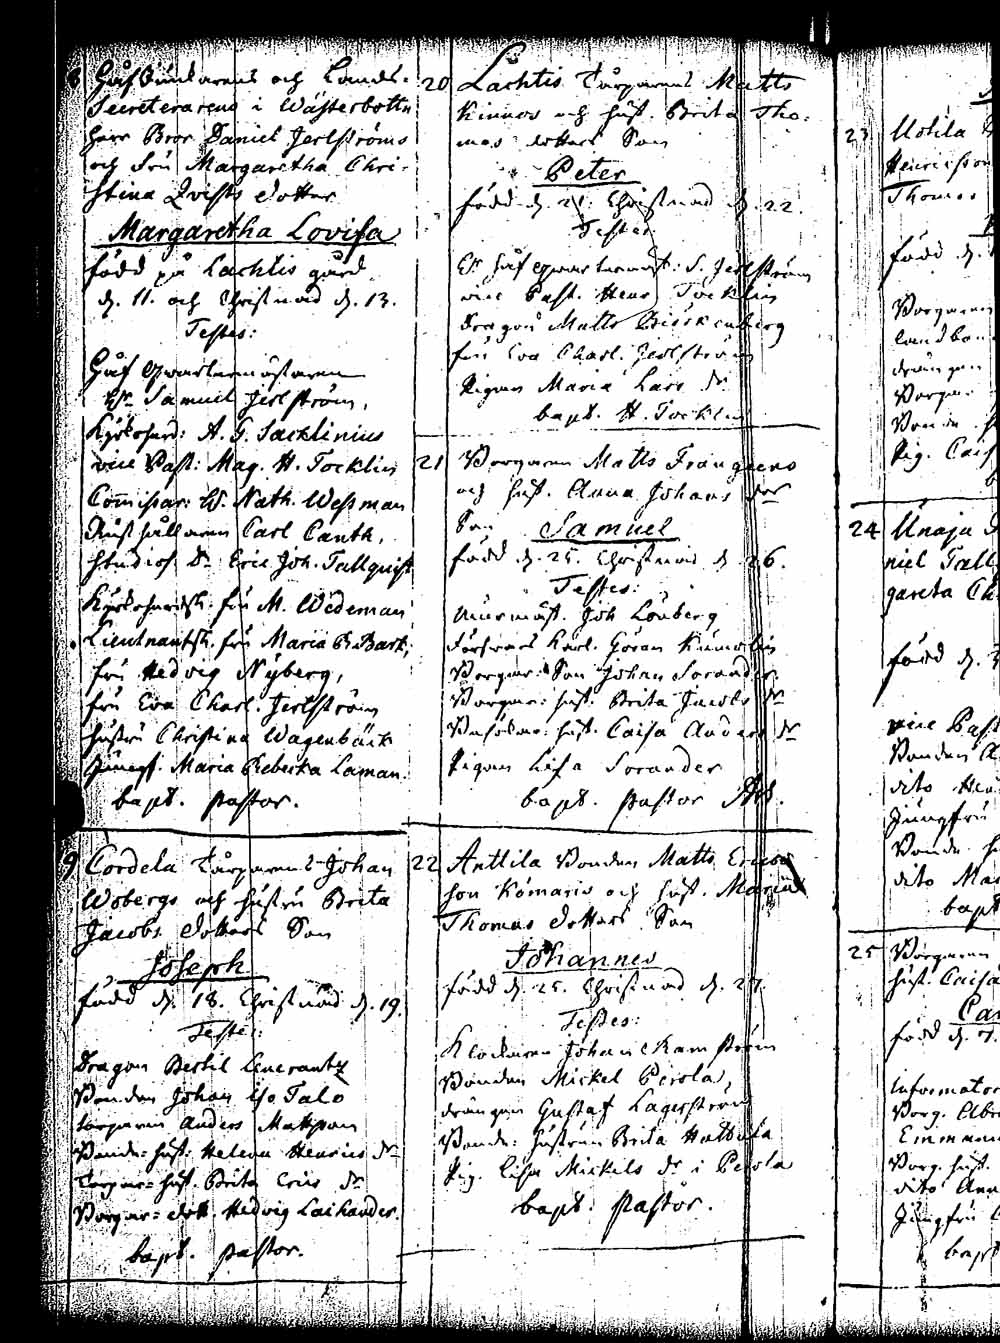 8 Håf Junkarens och Lands-
Secreterarens i Wästerbottn
herr Bror Daniel Jerlströms
och fru Margaretha Chri-
stina Qvists dotter
Margaretha Lovisa
född på Lachtis gård
d. 11. och Christnad d. 13.
Testes:
Håf qwartermästaren
Hr Samuel Jerlström,
Kyrkoherd: A. G. Sacklinius
vice Past: Mag. H. Tocklin
Commissar: W. Nath. Wessman
Rusthållaren Carl Canth,
Studios Dn Eric Joh. Tallquist
Kyrkoherdsk: fru M. Wideman
Lieutnantsk. fru Maria R. Bark,
fru Hedvig Nyberg,
fru Eva Charl. Jerlström
hustru Christina Wagenbäck
Jungf. Maria Rebecka Laman.
bapt. pastor.
9 Cordela Torparens Johan
Wobergs och hustru Brita
Jacobs dotters Son
Joseph
född d. 18. Christnad d. 19.
Testes:
Dragon Bertil Enerantz
Bonden Johan Iso Talo
torparen Anders Mattsson
Bonde: hust: Helena Henrics dr
Torpar: hust. Brita Erics dr
Borgar: dott. Hedvig Laihander.
bapt. pastor.
20 Lachtis Torparens Matts
Kinnos och hust. Brita Tho-
mas dotters Son
Peter
född d. 21. Christnad d. 22.
Testes
Hr håf qwartermäst: S. Jerlström
vice Past. Henr. Tocklin
Dragon Matts Biörkenberg
fru Eva Charl. Jerlström
Pigan Maria Lars dr
bapt. H. Tocklin
21 Borgaren Matts Frangrens
och hust. Anna Johans dr
Son Samuel
född d. 25. Christnad d. 26.
Testes:
Murmäst. Joh Lönberg
Borgar: Son Johan Sorander
Borgar: hust. Brita Jacobs dr
hust. Caisa Anders dr
Pigan Lisa Sorander
bapt. pastor
22 Anttila Bonden Matts Erics
son Kömaris och hust. Maria
Thomas dotters Son
Johannes
född d. 25. Christnad d. 27.
Testes:
Klockaren Johan Ramström
Bonden Mickel Perola,
drängen Gustaf Lagerström
Bonde: hustrun Brita Hattula
Pig. Lisa Mickels dr i Perola
bapt. pastor.
23 Uotila
Henricsson
Thomas
född d.
Borgaren
Landbon
drängen
Borgar
Bonde
Pig. Cais
24 Unaja
niel Tall
gareta Ch
född d.
vice Past
Bonden A
dito Hen
Jungfru
Bonde h
dito Mar
bapt
25 Borgaren
hust. Caisa
Car
född d. 7.
Informator
Borg. Abr
Emmanu
Borg. hust.
dito Ann
Jungfru
bapt